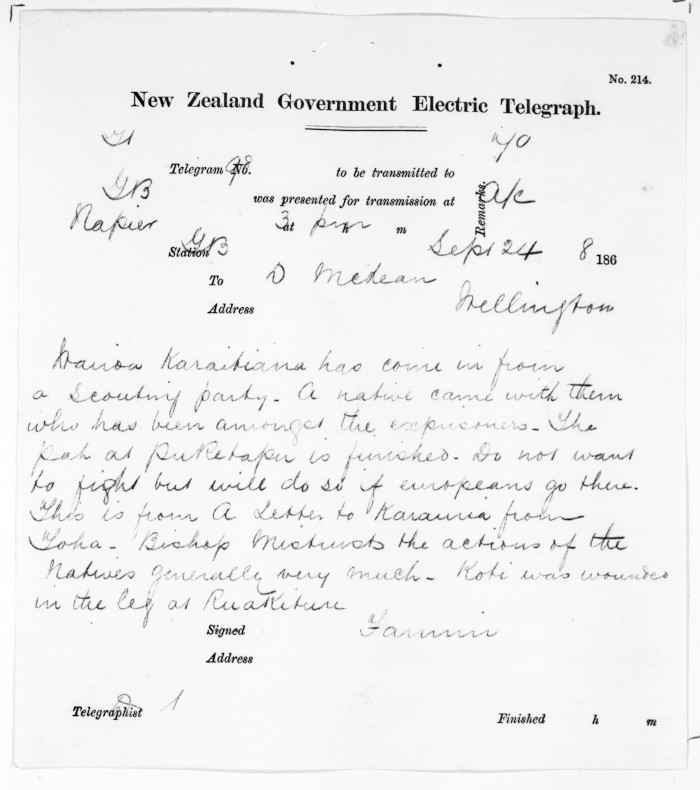 No. 214.
New Zealand Government Electric Telegraph.
Telegram No. 98 to be transmitted to
GB was presented for transmission at
Remarks. A/c
Napier at 3 pm h m
Station GB Sept 24 8 186
To D McLean
Address Wellington
Wairoa Karaitiana has come in from
a Scouting party - A native came with them
who has been amongst the exprisoners - The
pah at Puketapu is finished - Do not want
to fight but will do so if europeans go there.
This is from A Letter to Karauria from
Toha - Bishop Mistrusts the actions of the
Natives generally very much - Koti was wounded
in the leg at Ruakiture
Signed Fannin
Address
Telegraphist
Finished h m